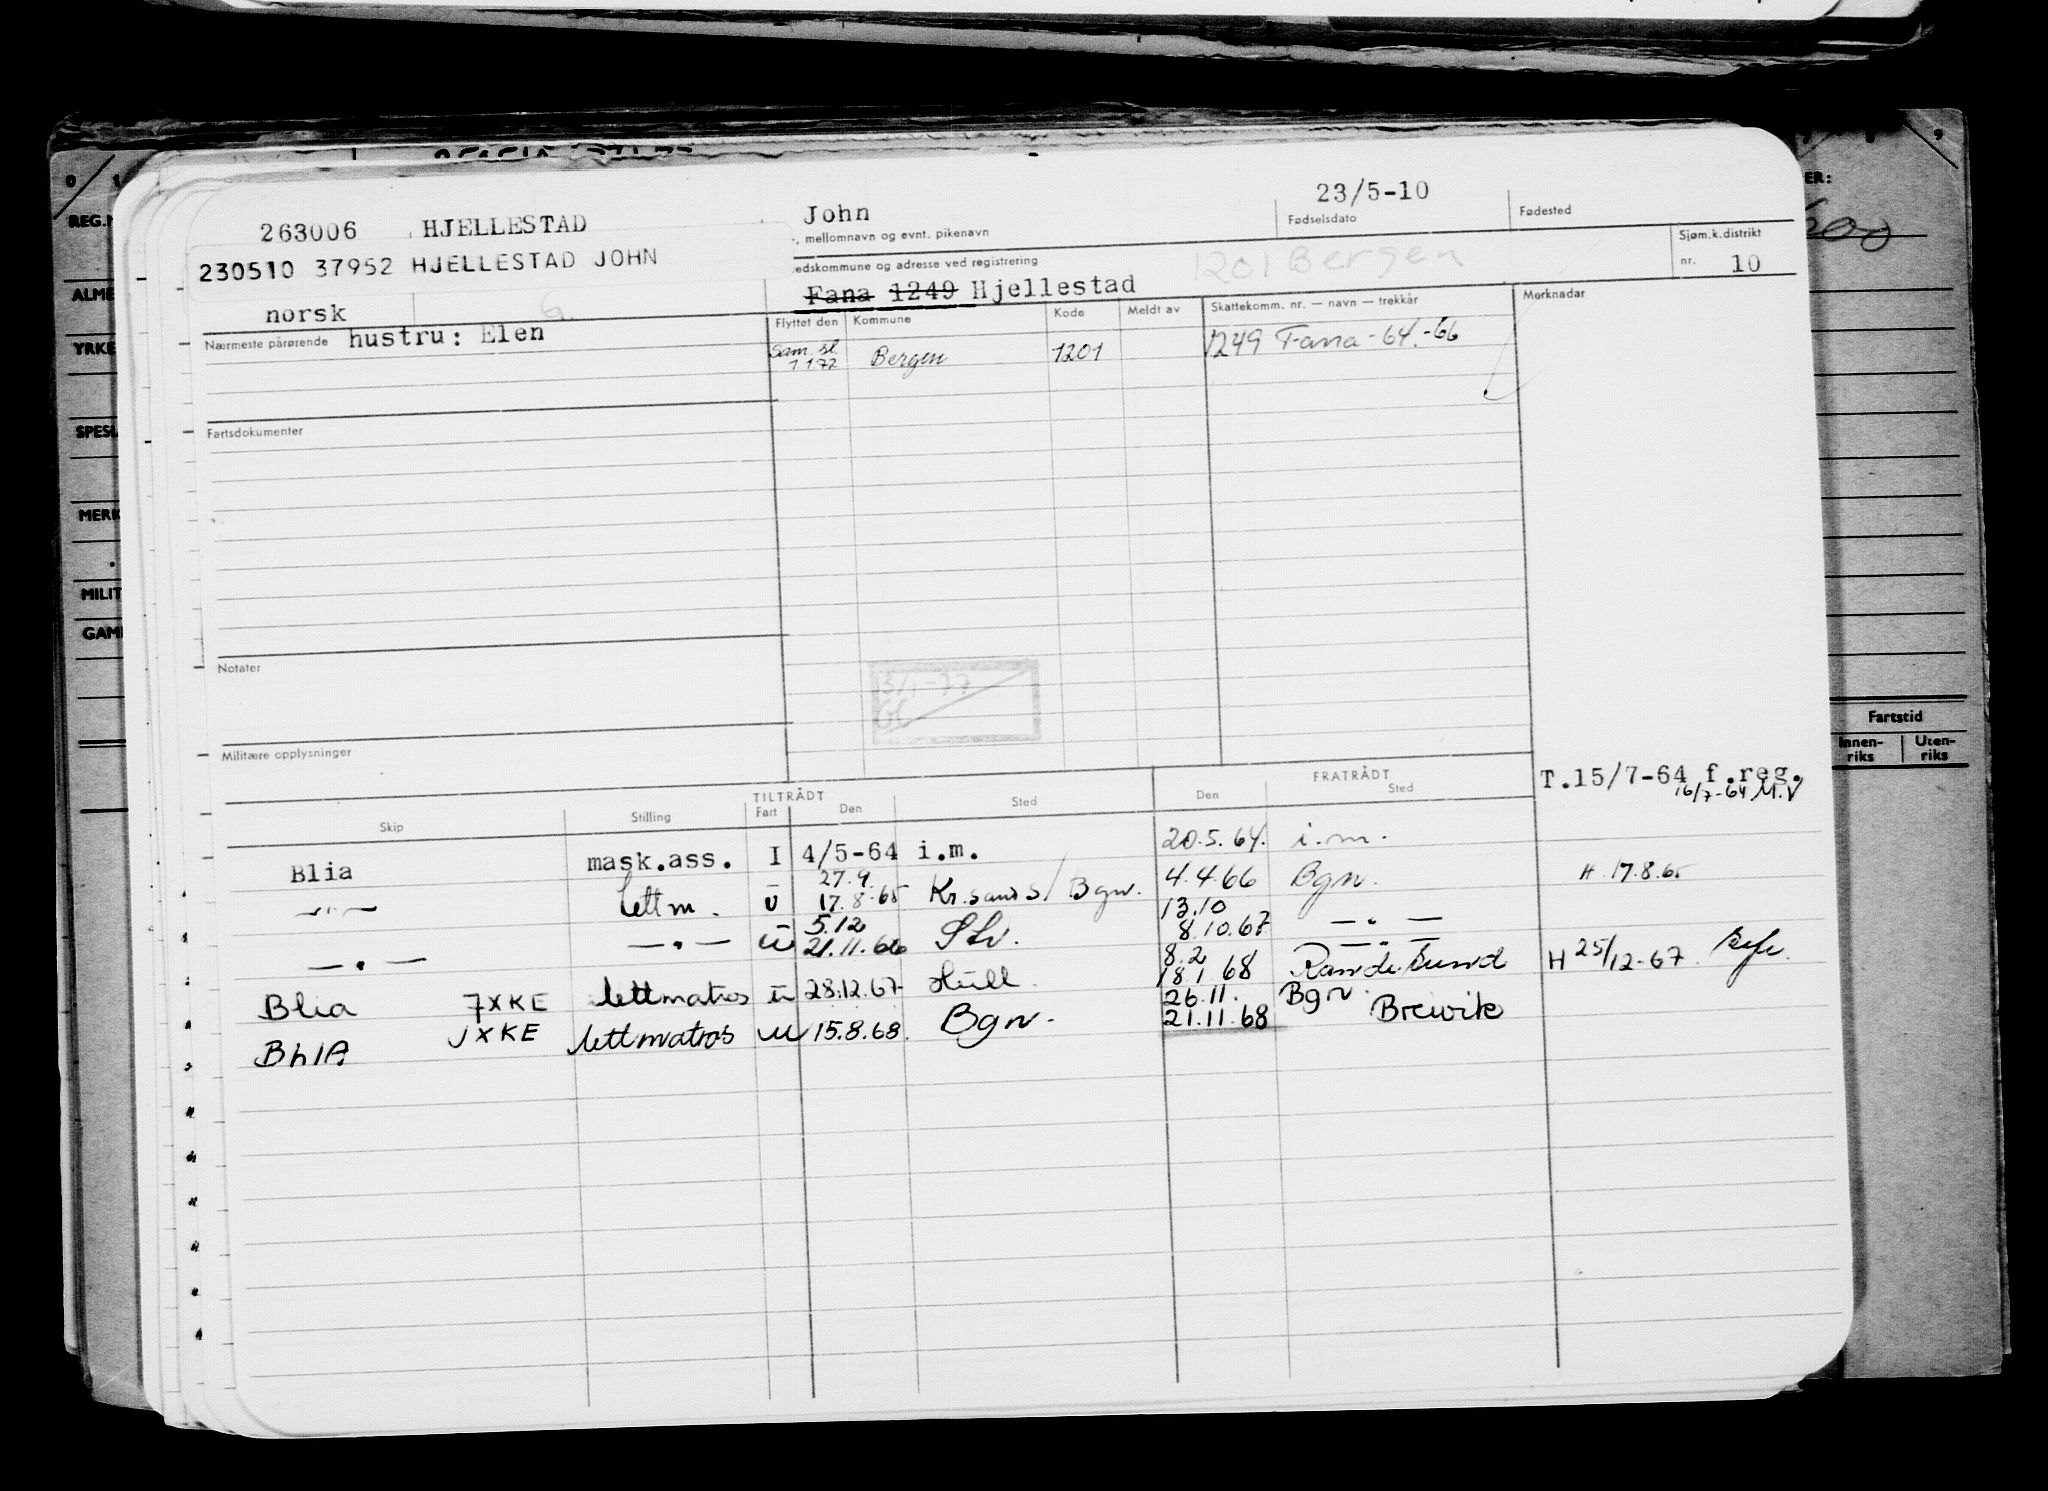 REG.N
ALME
YRKE
SPESI
MERK
MILIT
GAM
263006 HJELLESTAD
John
23/5-10
-, mellomnavn og evnt. pikenavn
Fødselsdato
Fødested
230510 37952 HJELLESTAD JOHN
edskommune og adresse ved registrering
1201 Bergen
Sjøm.k.distrikt
nr. 10
norsk
Fana 1249 Hjellestad
Nærmeste pårørende hustru: Elen
Flyttet den
Kommune
Kode
Meldt av
Skattekomm. nr. — navn — trekkår
Merknadar
Sam. sl. 1 1 72
Bergen
1201
1249 Fana -64.-66
Fartsdokumenter
Notater
3/1-77
Militære opplysninger
TILTRÅDT
FRATRÅDT
Skip
Stilling
Fart
Den
Sted
Den
Sted
T.15/7-64 f.reg.
16/7-64 M.V
Blia mask.ass. I 4/5-64 i.m. 20.5.64. i.m.
—"— lettm. U 27.9. 17.8.65 Kr.sand S/ Bgn. 4.4.66 Bgn. H. 17.8.65
—"— —"— U 5.12 21.11.66 13.10 8.10.67 —"—
Blia JXKE lettmatros U 28.12.67 Hull 8.2 18 1 68 —"— H 25/12-67
BLIA JXKE lettmatros U 15.8.68. Bgn. 26.11. 21.11.68 Bgn. Brevik
Fartstid
Innen-
riks
Uten-
riks